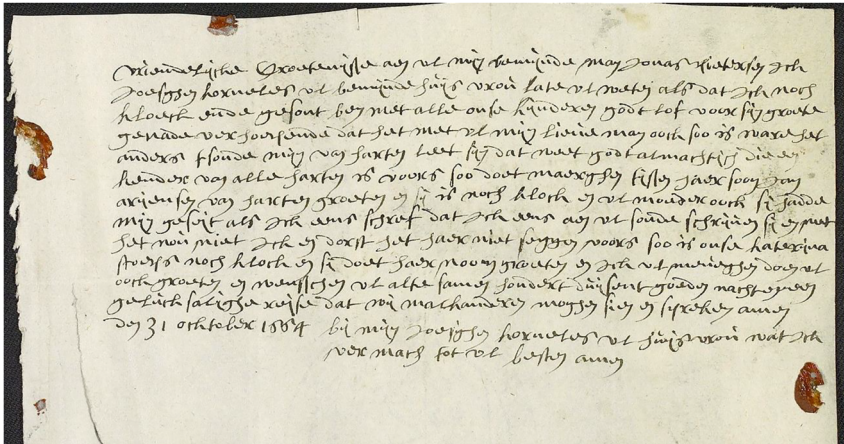 vriendelijcke Groetenisse aen ul mijn beminde man Jonas pietersen ick
Joesghen korneles ul beminde huijs vrou late ul weten als dat ick noch
kloeck ende gesont ben met alle onse kijnderen godt lof voor sijn groote
genade verhoepende dat het met ul mijn lieve man oock soo is ware het
anders tsoude mijn van harten leet sijn dat weet godt almachtich die een
kender van alle harten is voors soo doet maerghen haer soon Jan
arijensen van harten groeten en sij is noch kloeck en ul moeder oock sij hadde
mijn geseijt als ick eens schref dat ick eens aen ul soude schrijven sij en met
het nou niet ick en dorst het haer niet seggen voors soo is onse katerina
noch kloeck en sij doet haer noom groeten en ick ul doen ul
oock groeten en wensschen ul alte samen hondert duijsent goeden nacht een
geluck salighe reijse dat wij malkanderen moghen sien en spreken amen
den 31 ocktober 1664 bij mijn Joesghen korneles ul huijs vrou wat ick
vermach tot ul besten amen